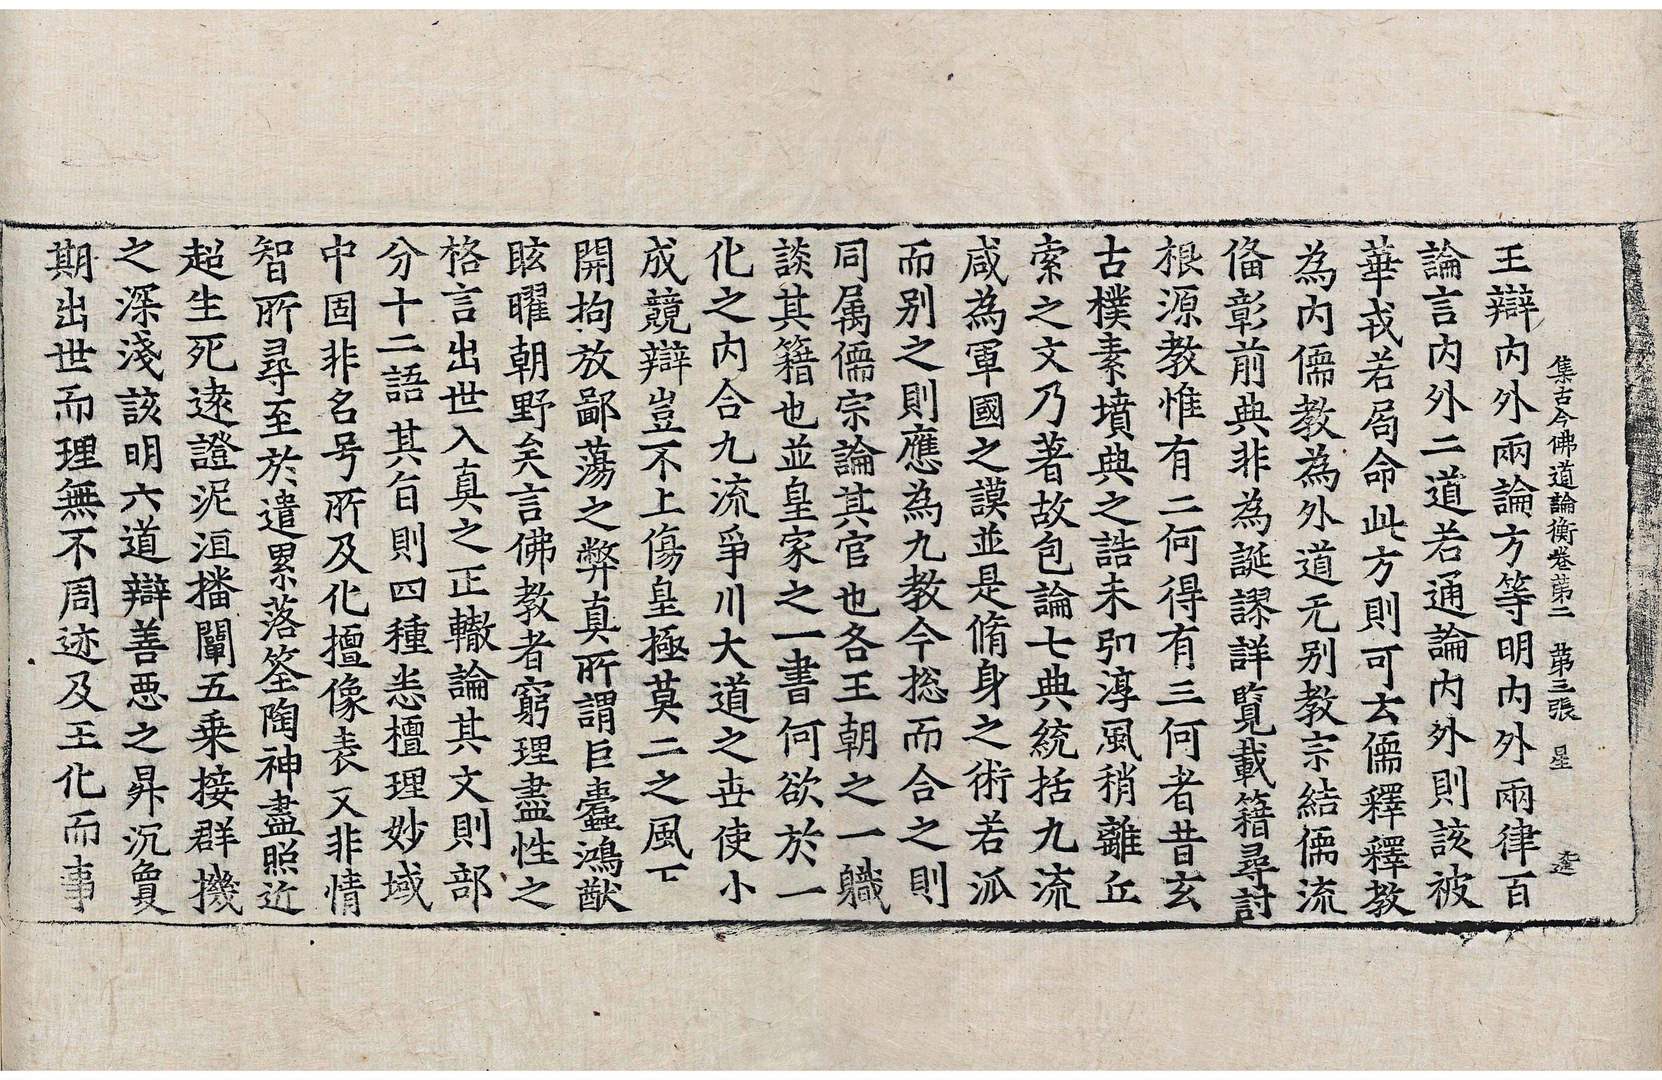 集古今佛道論衡卷第二　第三張　星
王辯内外兩論方等明内外兩律百
論言内外二道若通論内外則該被
華戎若局命此方則可云儒釋釋教
為内儒教為外道无别教宗結儒流
俻彰前典非為誕謬詳覧載籍尋討
根源教惟有二何得有三何者昔玄
古樸素墳典之誥未弘淳風稍離丘
索之文乃著故包論七典統括九流
咸為軍國之謨並是脩身之術若派
而别之則應為九教今揔而合之則
同属儒宗論其官也各王朝之一職
談其籍也並皇家之一書何欲於一
化之内合九流爭川大道之世使小
成競辯豈不上傷皇極莫二之風下
開拘放鄙蕩之弊真所謂巨蠹鴻猷
眩曜朝野矣言佛教者窮理盡性之
格言出世入真之正轍論其文則部
分十二語其旨則四種悉檀理妙域
中固非名号所及化擅像表又非情
智所尋至於遣累落筌陶神盡照近
超生死逺證泥洹播闡五乗接群機
之深淺該明六道辯善惡之昇沉敻
期出世而理無不周迹及王化而事